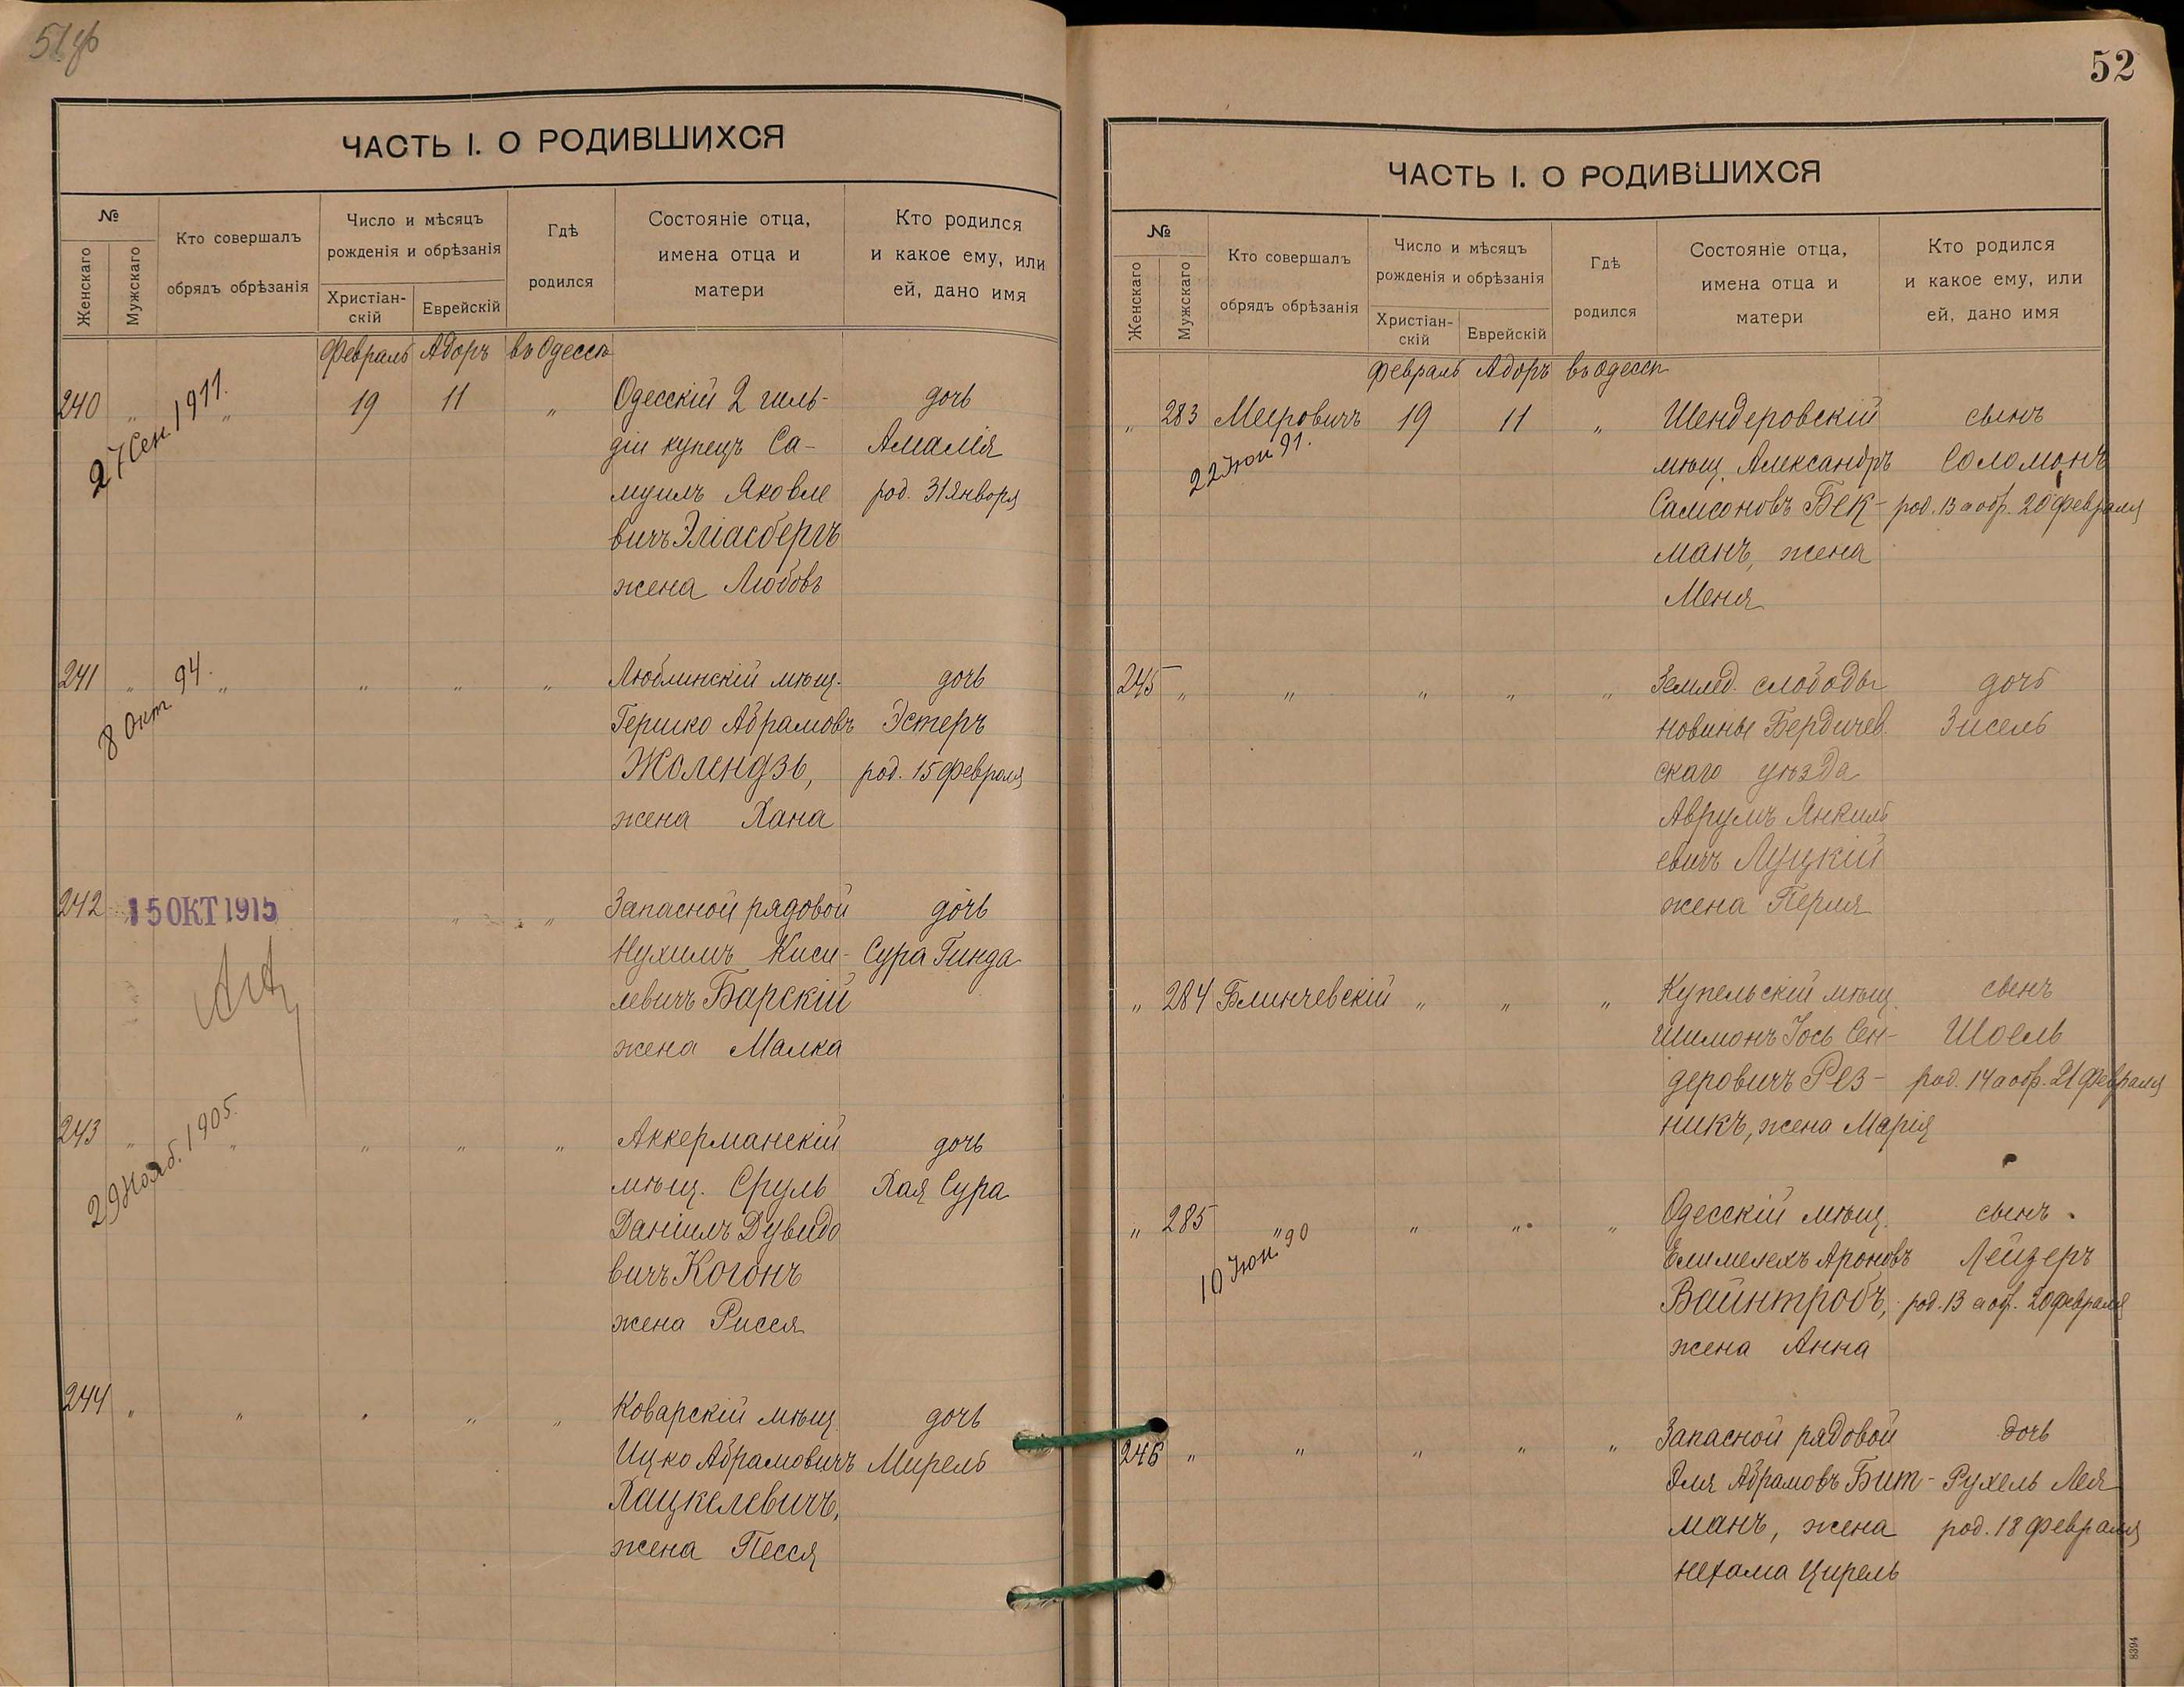 51об
ЧАСТЬ I. О РОДИВШИХСЯ
№
Женскаго
Мужскаго
Кто совершалъ
обрядъ обрѣзанія
Число и мѣсяцъ
рожденія и обрѣзанія
Христіан-
скій
Еврейскій
Гдѣ
родился
Состояніе отца,
имена отца и
матери
Кто родился
и какое ему, или
ей, дано имя
Февраль Адоръ въ Одессѣ
240 " " 19 11 " Одесскій 2 гиль- дочь
27 Сен. 1911.
діи купецъ Са- Амалія
муилъ Яковле род. 31 Января
вичъ Эліасбергъ
жена Любовь
241 " " " " " Люблинскій мѣщ. дочь
8 Окт. 94.
Гершко Абрамовъ Эстеръ
Жолендзь, род. 15 Февраля
жена Хана
242 15 ОКТ 1915 " " Запасной рядовой дочь
Нухимъ Киси- Сура Гинда
левичъ Барскій
жена Малка
243 " " " " " Аккерманскій дочь
29 Нояб. 1905.
мѣщ. Сруль Хая Сура
Даніилъ Дувидо
вичъ Когонъ
жена Рисся
244 " " " " " Коварскій мѣщ. дочь
Ицко Абрамовичъ Мирель
Хацкелевичъ,
жена Песся
52
ЧАСТЬ I. О РОДИВШИХСЯ
№
Женскаго
Мужскаго
Кто совершалъ
обрядъ обрѣзанія
Число и мѣсяцъ
рожденія и обрѣзанія
Христіан-
скій
Еврейскій
Гдѣ
родился
Состояніе отца,
имена отца и
матери
Кто родился
и какое ему, или
ей, дано имя
Февраль Адоръ въ Одессѣ
" 283 Мееровичъ 19 11 " Шендеровскій сынъ
22 Іюн 91.
мѣщ. Александръ Соломонъ
Самсоновъ Бек- род. 13 а обр. 20 Февраля
манъ, жена
Меня
245 " " " " " Землед. слободы дочь
Новины Бердичев. Зисель
скаго уѣзда
Аврумъ Янкель
евичъ Луцкій
жена Перля
" 284 Блинчевскій " " " Купельскій мѣщ. сынъ
Шимонъ Іось Сен- Шоель
деровичъ Рез- род. 14 а обр. 21 Февраля
никъ, жена Марія
" 285 " " " " Одесскій мѣщ. сынъ
10 Іюн. 90
Елимелехъ Ароновъ Лейзеръ
Вайнтробъ, род. 13 а об. 20 февраля
жена Анна
246 " " " " " Запасной рядовой дочь
Эля Абрамовъ Бит- Рухель Лея
манъ, жена род. 18 Февраля
Нехама Цирель
8394